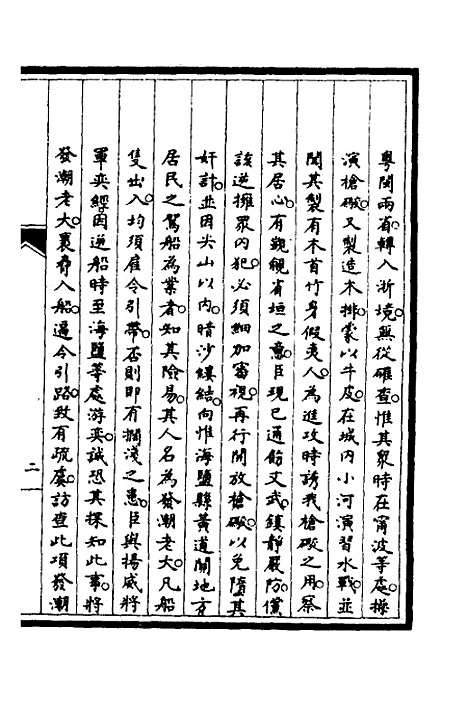 粤閩兩省轉入浙境。無從確查。惟其衆時在甯波等處。操
演槍礮。又製造木排。蒙以牛皮。在城内小河演習水戰。並
聞其製有木首竹身假夷人。為進攻時誘我槍礮之用。察
其居心。有覬覦省垣之意。臣現已通飭文武。鎮靜嚴防。儻
該逆擁衆内犯。必須細加審視。再行開放槍礮。以免墮其
奸計。並因尖山以内。暗沙縷結。向惟海鹽縣黄道關地方
居民之駕船為業者。知其險易。其人名為發潮老大。凡船
隻出入。均須雇令引帶。否則即有擱淺之患。臣與揚威將
軍奕經。因逆船時至海鹽等處游奕。誠恐其探知此事。將
發潮老大裹脅入船。逼令引路。致有疏虞。訪查此項發潮
二